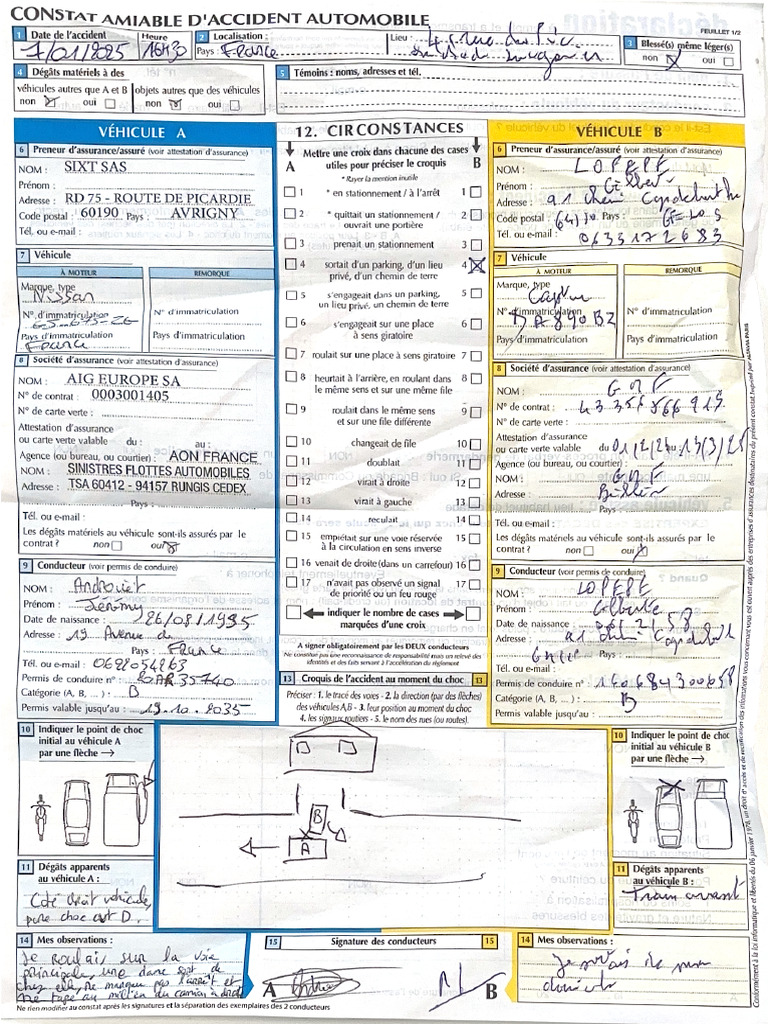 CONSTAT AMIABLE D'ACCIDENT AUTOMOBILE
FEUILLET 1/2
1 Date de l'accident Heure
7/01/2025 16H30
2 Localisation : Lieu :
Pays : France
3 Blessé(s) même léger(s)
non X oui
4 Dégâts matériels à des
véhicules autres que A et B objets autres que des véhicules
non X oui non X oui
5 Témoins : noms, adresses et tél.
VÉHICULE A
6 Preneur d'assurance/assuré (voir attestation d'assurance)
NOM : SIXT SAS
Prénom :
Adresse : RD 75 - ROUTE DE PICARDIE
Code postal : 60190 Pays : AVRIGNY
Tél. ou e-mail :
7 Véhicule
À MOTEUR REMORQUE
Marque, type
Nissan
N° d'immatriculation N° d'immatriculation
Pays d'immatriculation Pays d'immatriculation
France
8 Société d'assurance (voir attestation d'assurance)
NOM : AIG EUROPE SA
N° de contrat : 0003001405
N° de carte verte :
Attestation d'assurance
ou carte verte valable du : au :
Agence (ou bureau, ou courtier) : AON FRANCE
NOM : SINISTRES FLOTTES AUTOMOBILES
Adresse : TSA 60412 - 94157 RUNGIS CEDEX
Pays :
Tél. ou e-mail :
Les dégâts matériels au véhicule sont-ils assurés par le
contrat ? non oui
9 Conducteur (voir permis de conduire)
NOM :
Prénom : Jérémy
Date de naissance : 26/08/1995
Adresse : 19 Avenue de
Pays : France
Tél. ou e-mail : 0698054263
Permis de conduire n° : 20AR35740
Catégorie (A, B, ...) : B
Permis valable jusqu'au : 19.10.2035
10 Indiquer le point de choc
initial au véhicule A
par une flèche →
11 Dégâts apparents
au véhicule A :
Coté droit véhicule
choc D.
14 Mes observations :
Je roulais sur la voie
principale, une dame sort de
chez elle, ne marque pas l'arrêt et
me tape au milieu du camion à droite
12. CIRCONSTANCES
A Mettre une croix dans chacune des cases B
utiles pour préciser le croquis
* Rayer la mention inutile
1 * en stationnement / à l'arrêt 1
2 * quittait un stationnement / 2
ouvrait une portière
3 prenait un stationnement 3
4 sortait d'un parking, d'un lieu 4 X
privé, d'un chemin de terre
5 s'engageait dans un parking, 5
un lieu privé, un chemin de terre
6 s'engageait sur une place 6
à sens giratoire
7 roulait sur une place à sens giratoire 7
8 heurtait à l'arrière, en roulant dans 8
le même sens et sur une même file
9 roulait dans le même sens 9
et sur une file différente
10 changeait de file 10
11 doublait 11
12 virait à droite 12
13 virait à gauche 13
14 reculait 14
15 empiétait sur une voie réservée 15
à la circulation en sens inverse
16 venait de droite (dans un carrefour) 16
17 n'avait pas observé un signal 17
de priorité ou un feu rouge
indiquer le nombre de cases
marquées d'une croix
A signer obligatoirement par les DEUX conducteurs
Ne constitue pas une reconnaissance de responsabilité mais un relevé des
identités et des faits servant à l'accélération du règlement
13 Croquis de l'accident au moment du choc 13
Préciser : 1. le tracé des voies - 2. la direction (par des flèches)
des véhicules A,B - 3. leur position au moment du choc
4. les signaux routiers - 5. le nom des rues (ou routes).
B
A
15 Signature des conducteurs 15
A B
VÉHICULE B
6 Preneur d'assurance/assuré (voir attestation d'assurance)
NOM : LOPEPE
Prénom :
Adresse :
Code postal : Pays :
Tél. ou e-mail :
0633172683
7 Véhicule
À MOTEUR REMORQUE
Marque, type
Captur
N° d'immatriculation N° d'immatriculation
Pays d'immatriculation Pays d'immatriculation
8 Société d'assurance (voir attestation d'assurance)
NOM : GMF
N° de contrat :
N° de carte verte :
Attestation d'assurance
ou carte verte valable du au
Agence (ou bureau, ou courtier) :
NOM : GMF
Adresse :
Pays :
Tél. ou e-mail :
Les dégâts matériels au véhicule sont-ils assurés par le
contrat ? non oui X
9 Conducteur (voir permis de conduire)
NOM : LOPEPE
Prénom :
Date de naissance :
Adresse :
Pays :
Tél. ou e-mail :
Permis de conduire n° :
Catégorie (A, B, ...) : B
Permis valable jusqu'au :
10 Indiquer le point de choc
initial au véhicule B
par une flèche →
11 Dégâts apparents
au véhicule B :
avant
14 Mes observations :
Je de mon
domicile
Ne rien modifier au constat après les signatures et la séparation des exemplaires des 2 conducteurs